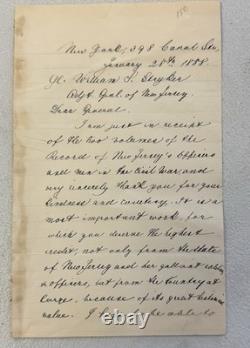 New York, 398 Canal St.,
January 20th, 1888
William S. Stryker
Adjt Genl. of New Jersey.
Dear General,
I am just in receipt
of the two volumes of the
Record of New Jersey's Officers
and men in the Civil War, and
very sincerely thank you for your
kindness and courtesy. It is a
most important work for
which you deserve the highest
credit, not only from the State
of New Jersey and her gallant
& officers, but from the Country at
Large, because of its great historical
value. I be able to